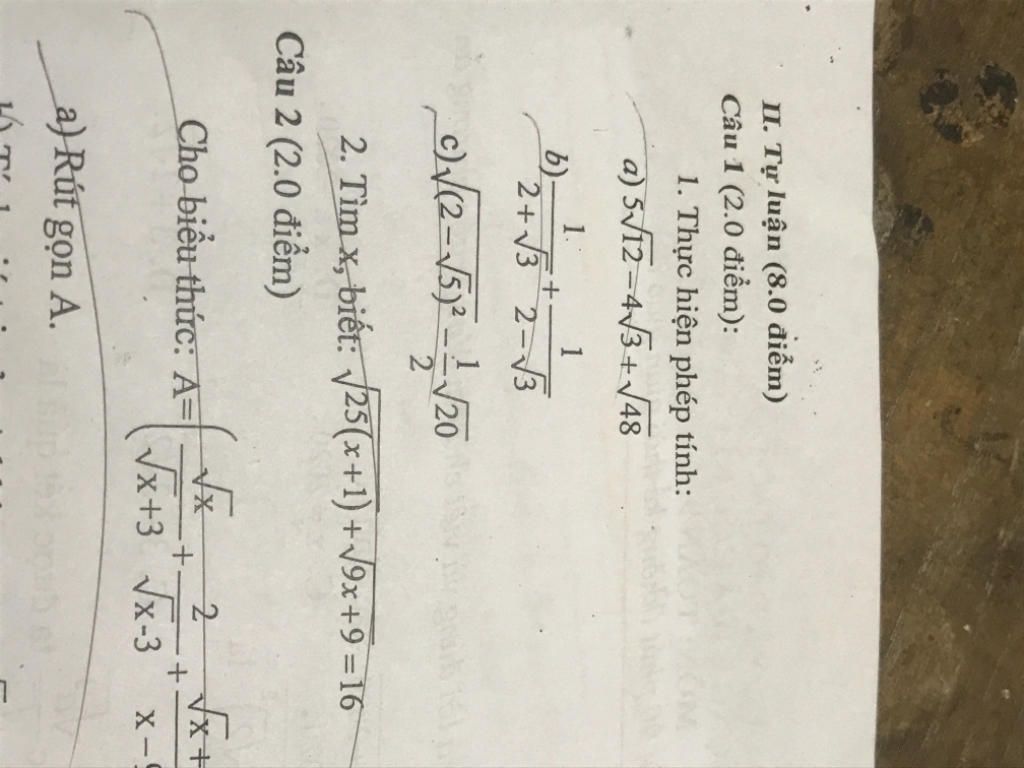 II. Tự luận (8.0 điểm)
Câu 1 (2.0 điểm):
1. Thực hiện phép tính:
a) 5√12 − 4√3 + √48
b) 1/(2+√3) + 1/(2−√3)
c) √((2−√5)²) − 1/2 √20
2. Tìm x, biết: √(25(x+1)) + √(9x+9) = 16
Câu 2 (2.0 điểm)
Cho biểu thức: A = (√x/(√x+3) + 2/(√x-3) + √x+
a) Rút gọn A.